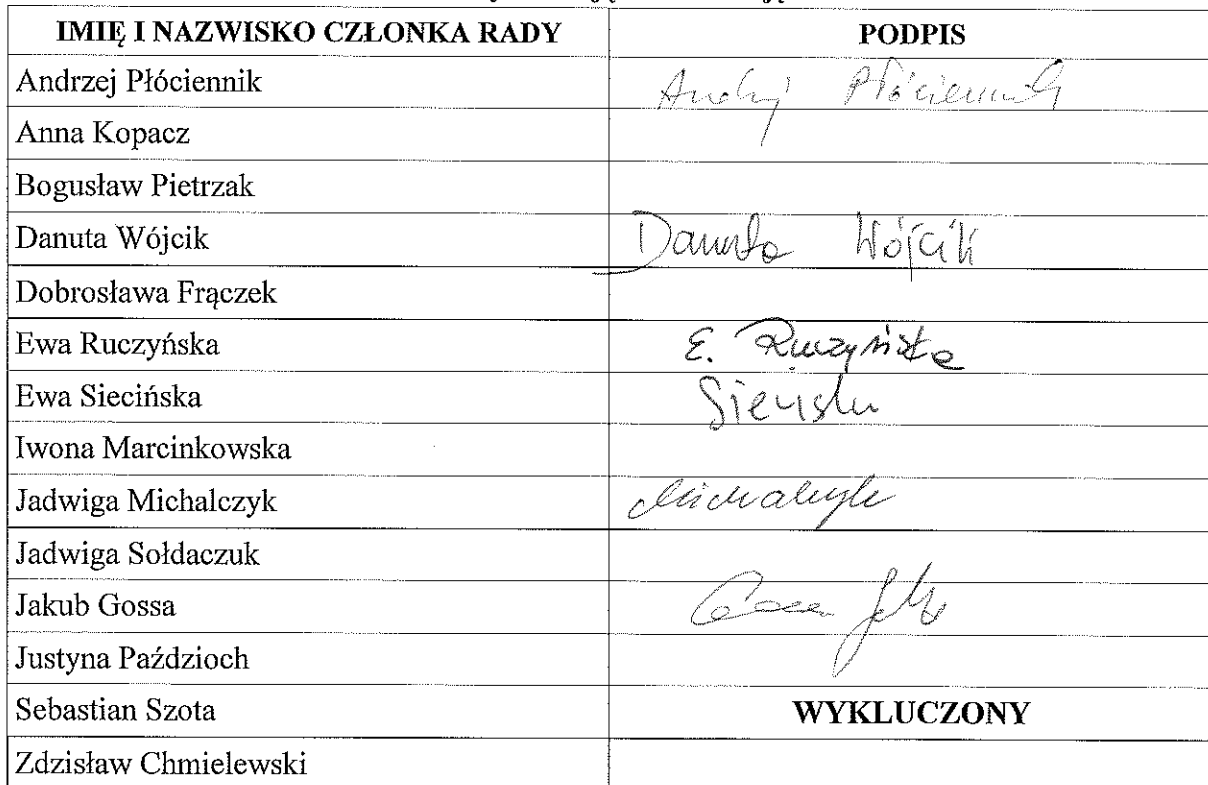 IMIĘ I NAZWISKO CZŁONKA RADY PODPIS
Andrzej Płóciennik Andrzej Płóciennik
Anna Kopacz
Bogusław Pietrzak
Danuta Wójcik Danuta Wójcik
Dobrosława Frączek
Ewa Ruczyńska E. Ruczyńska
Ewa Siecińska
Iwona Marcinkowska
Jadwiga Michalczyk Michalczyk
Jadwiga Sołdaczuk
Jakub Gossa
Justyna Paździoch
Sebastian Szota WYKLUCZONY
Zdzisław Chmielewski